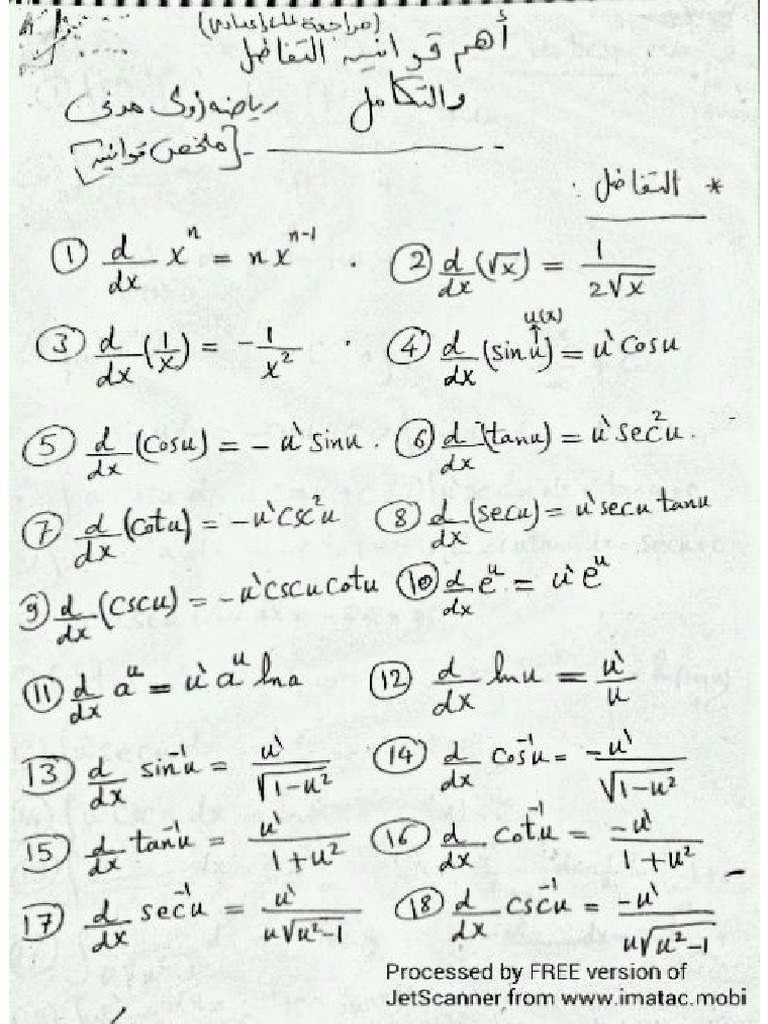 (مراجعة على إعدادى)
أهم قوانين التفاضل
والتكامل
رياضه أولى مدنى
[ملخص قوانين]
* التفاضل :
① d/dx x^n = n x^(n-1) . ② d/dx (√x) = 1/(2√x)
③ d/dx (1/x) = -1/x² . ④ d/dx (sin u) = u` cos u
u(x)
⑤ d/dx (cos u) = - u` sin u . ⑥ d/dx (tan u) = u` sec² u .
⑦ d/dx (cot u) = -u` csc² u ⑧ d/dx (sec u) = u` sec u tan u
⑨ d/dx (csc u) = -u` csc u cot u ⑩ d/dx e^u = u` e^u
⑪ d/dx a^u = u` a^u ln a ⑫ d/dx ln u = u`/u
⑬ d/dx sin⁻¹ u = u`/√(1-u²) ⑭ d/dx cos⁻¹ u = -u`/√(1-u²)
⑮ d/dx tan⁻¹ u = u`/(1+u²) ⑯ d/dx cot⁻¹ u = -u`/(1+u²)
⑰ d/dx sec⁻¹ u = u`/(u√(u²-1)) ⑱ d/dx csc⁻¹ u = -u`/(u√(u²-1))
Processed by FREE version of
JetScanner from www.imatac.mobi